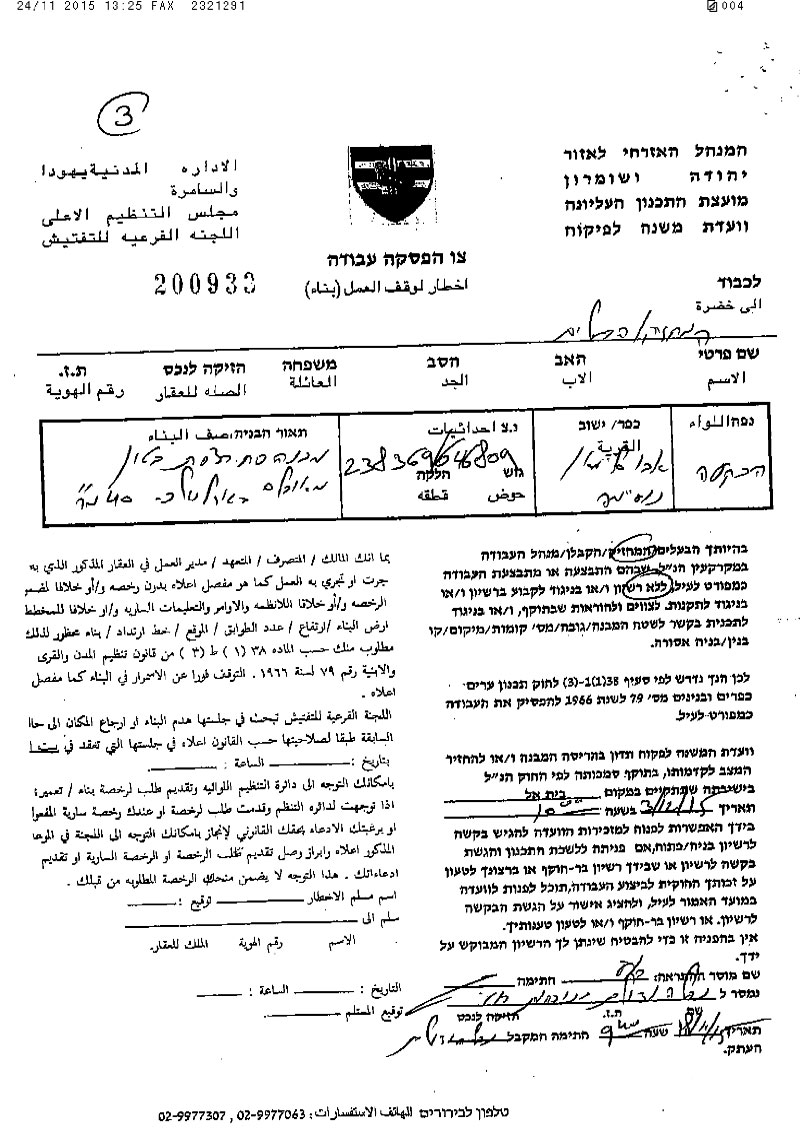 24/11 2015 13:25 FAX 2321291
004
3
המנהל האזרחי לאזור
יהודה ושומרון
מועצת התכנון העליונה
וועדת משנה לפיקוח
الاداره المدنية يهودا
والسامرة
مجلس التنظيم الاعلى
اللجنه الفرعيه للتفتيش
צו הפסקה עבודה
اخطار لوقف العمل (بناء)
200933
לכבוד
الى حضرة
שם פרטי האב הסב משפחה הזיקה לנכס ת.ז.
الاسم الاب الجد العائلة الصله للعقار رقم الهوية
נפה اللواء
כפר/ ישוב
القرية
נ.צ احداثيات
238369/646809
גוש חלקה
حوض قطعه
תאור הבניה: صف البناء
בהיותך הבעלים/המחזיק/הקבלן/מנהל העבודה
במקרקעין הנ"ל שבהם התבצעה או מתבצעת העבודה
כמפורט לעיל, ללא רשיון ו/או בניגוד לקבוע ברשיון ו/או
בניגוד לתקנות. לצווים ולהוראות שבתוקף, ו/או בניגוד
לתכנית בקשר לשטח המבנה/גובה/מס' קומות/מיקום/קו
בנין/בניה אסורה.
לכן הנך נדרש לפי סעיף 38(1)-(3) לחוק תכנון ערים-
כפרים ובנינים מס' 79 לשנת 1966 להפסיק את העבודה
כמפורט לעיל.
וועדת המשנה לפקוח תדון בהריסת המבנה ו/או להחזיר
המצב לקדמותו, בתוקף סמכותה לפי החוק הנ"ל
בישיבתה שתתקיים במקום בית אל
תאריך 3/12/15 בשעה 10
בידך האפשרות לפנות למזכירות הוועדה להגיש בקשה
לרשיון בניה/פתוח, אם פניתה ללשכת התכנון והגשת
בקשה לרשיון או שבידך רשיון בר-תוקף או ברצונך לטעון
על זכותך החוקית לביצוע העבודה, תוכל לפנות לוועדה
במועד האמור לעיל, ולהציג אישור על הגשת הבקשה
לרשיון. או רשיון בר-תוקף ו/או לטעון טענותיך.
אין בהפניה זו כדי להבטיח שינתן לך הרשיון המבוקש על
ידך.
שם מוסר ההתראה: חתימה
נמסר ל
שם ת.ז. הזיקה לנכס
תאריך שעה חתימה המקבל
העתק.
بما انك المالك / المتصرف / المتعهد / مدير العمل في العقار المذكور الذي به
جرت او تجري به العمل كما هو مفصل اعلاه بدون رخصه و/أو خلافا
الرخصه و/أو خلافا للانظمه والاوامر والتعليمات الساريه و/او خلافا للمخطط
ارض البناء /ارتفاع / عدد الطوابق / الموقع / خط ارتداد / بناء محظور لذلك
مطلوب منك حسب الماده ٣٨ (١) ط (٣) من قانون تنظيم المدن والقرى
والابنية رقم ٧٩ لسنة ١٩٦٦ . التوقف فورا عن الاسمرار في البناء كما مفصل
اعلاه .
اللجنه الفرعيه للتفتيش تبحث في جلستها هدم البناء او ارجاع المكان الى حالته
السابقة طبقا لصلاحيتها حسب القانون اعلاه في جلستها التي تعقد في
بتاريخ : الساعة :
بامكانك التوجه الى دائرة التنظيم اللوائيه وتقديم طلب لرخصة بناء / تعمير:
اذا توجهت لدائره التنظم وقدمت طلب لرخصة او عندك رخصة سارية المفعول
او برغبتك الادعاء بحقك القانوني لإنجاز بامكانك التوجه الى اللجنة في الموعد
المذكور اعلاه وابراز وصل تقديم طلب الرخصة او الرخصة السارية او تقديم
ادعاءاتك . هذا التوجه لا يضمن منحك الرخصة المطلوبه من قبلك .
اسم مسلم الاخطار توقيع :
سلم الى
الاسم رقم الهوية الملك للعقار.
التاريخ : الساعة :
توقيع المستلم
טלפון לבירורים للهاتف الاستفسارات: 02-9977063 , 02-9977307